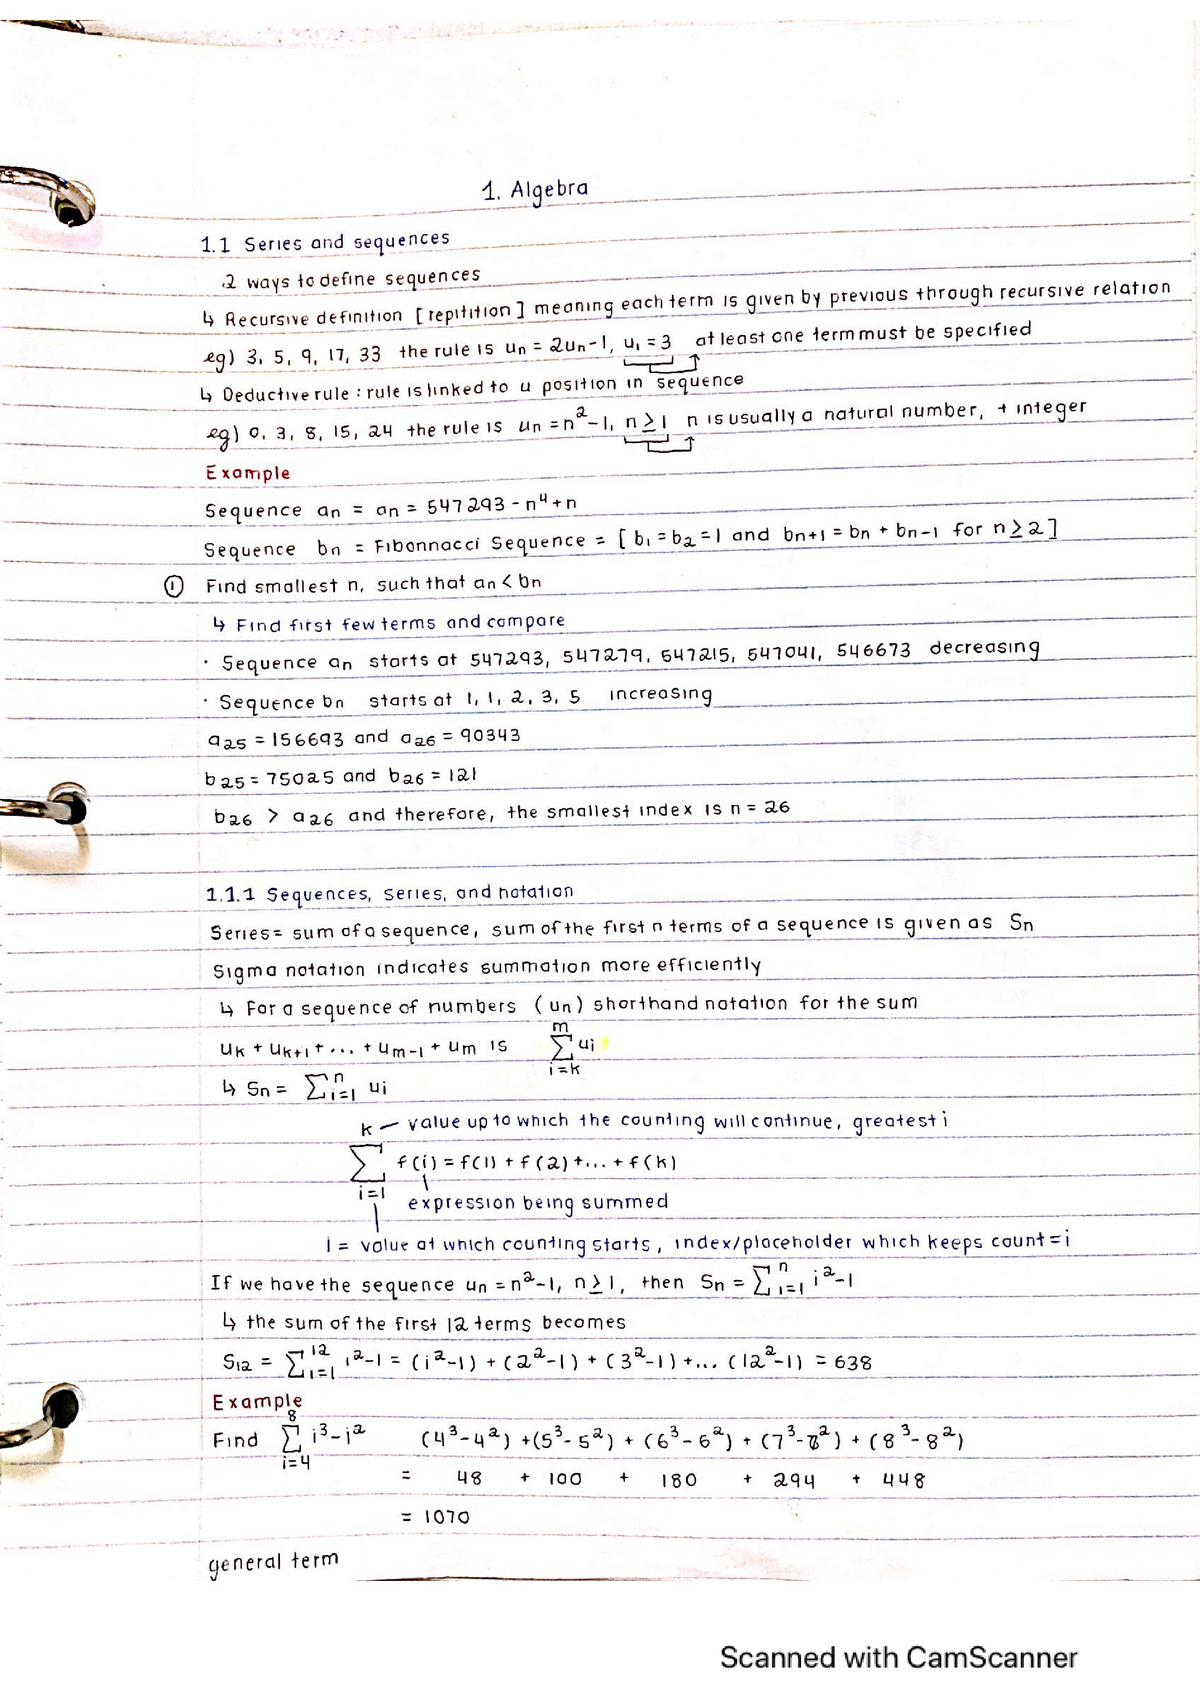 1. Algebra
1.1 Series and sequences
2 ways to define sequences
↳ Recursive definition [repitition] meaning each term is given by previous through recursive relation
eg) 3, 5, 9, 17, 33 the rule is un = 2un-1, u₁ = 3 at least one term must be specified
↳ Deductive rule : rule is linked to u position in sequence
eg) 0, 3, 8, 15, 24 the rule is un = n²-1, n≥1 n is usually a natural number, + integer
Example
Sequence an = an = 547293 - n⁴ + n
Sequence bn = Fibonnacci Sequence = [b₁ = b₂ = 1 and bn+1 = bn + bn-1 for n≥2]
① Find smallest n, such that an < bn
↳ Find first few terms and compare
· Sequence an starts at 547293, 547279, 547215, 547041, 546673 decreasing
· Sequence bn starts at 1, 1, 2, 3, 5 increasing
a25 = 156693 and a26 = 90343
b25 = 75025 and b26 = 121
b26 > a26 and therefore, the smallest index is n = 26
1.1.1 Sequences, series, and notation
Series = sum of a sequence, sum of the first n terms of a sequence is given as Sn
Sigma notation indicates summation more efficiently
↳ For a sequence of numbers (un) shorthand notation for the sum
m
uk + uk+1 + ... + um-1 + um is Σ ui
i=k
↳ Sn = Σⁿi=1 ui
k — value up to which the counting will continue, greatest i
Σ f(i) = f(1) + f(2) + ... + f(k)
i=1
expression being summed
i = value at which counting starts, index/placeholder which keeps count = i
If we have the sequence un = n²-1, n≥1, then Sn = Σⁿi=1 i²-1
↳ the sum of the first 12 terms becomes
S12 = Σ¹²i=1 i²-1 = (i²-1) + (2²-1) + (3²-1) + ... (12²-1) = 638
Example
8
Find Σ i³-i² (4³-4²) + (5³-5²) + (6³-6²) + (7³-7²) + (8³-8²)
i=4
= 48 + 100 + 180 + 294 + 448
= 1070
general term
Scanned with CamScanner